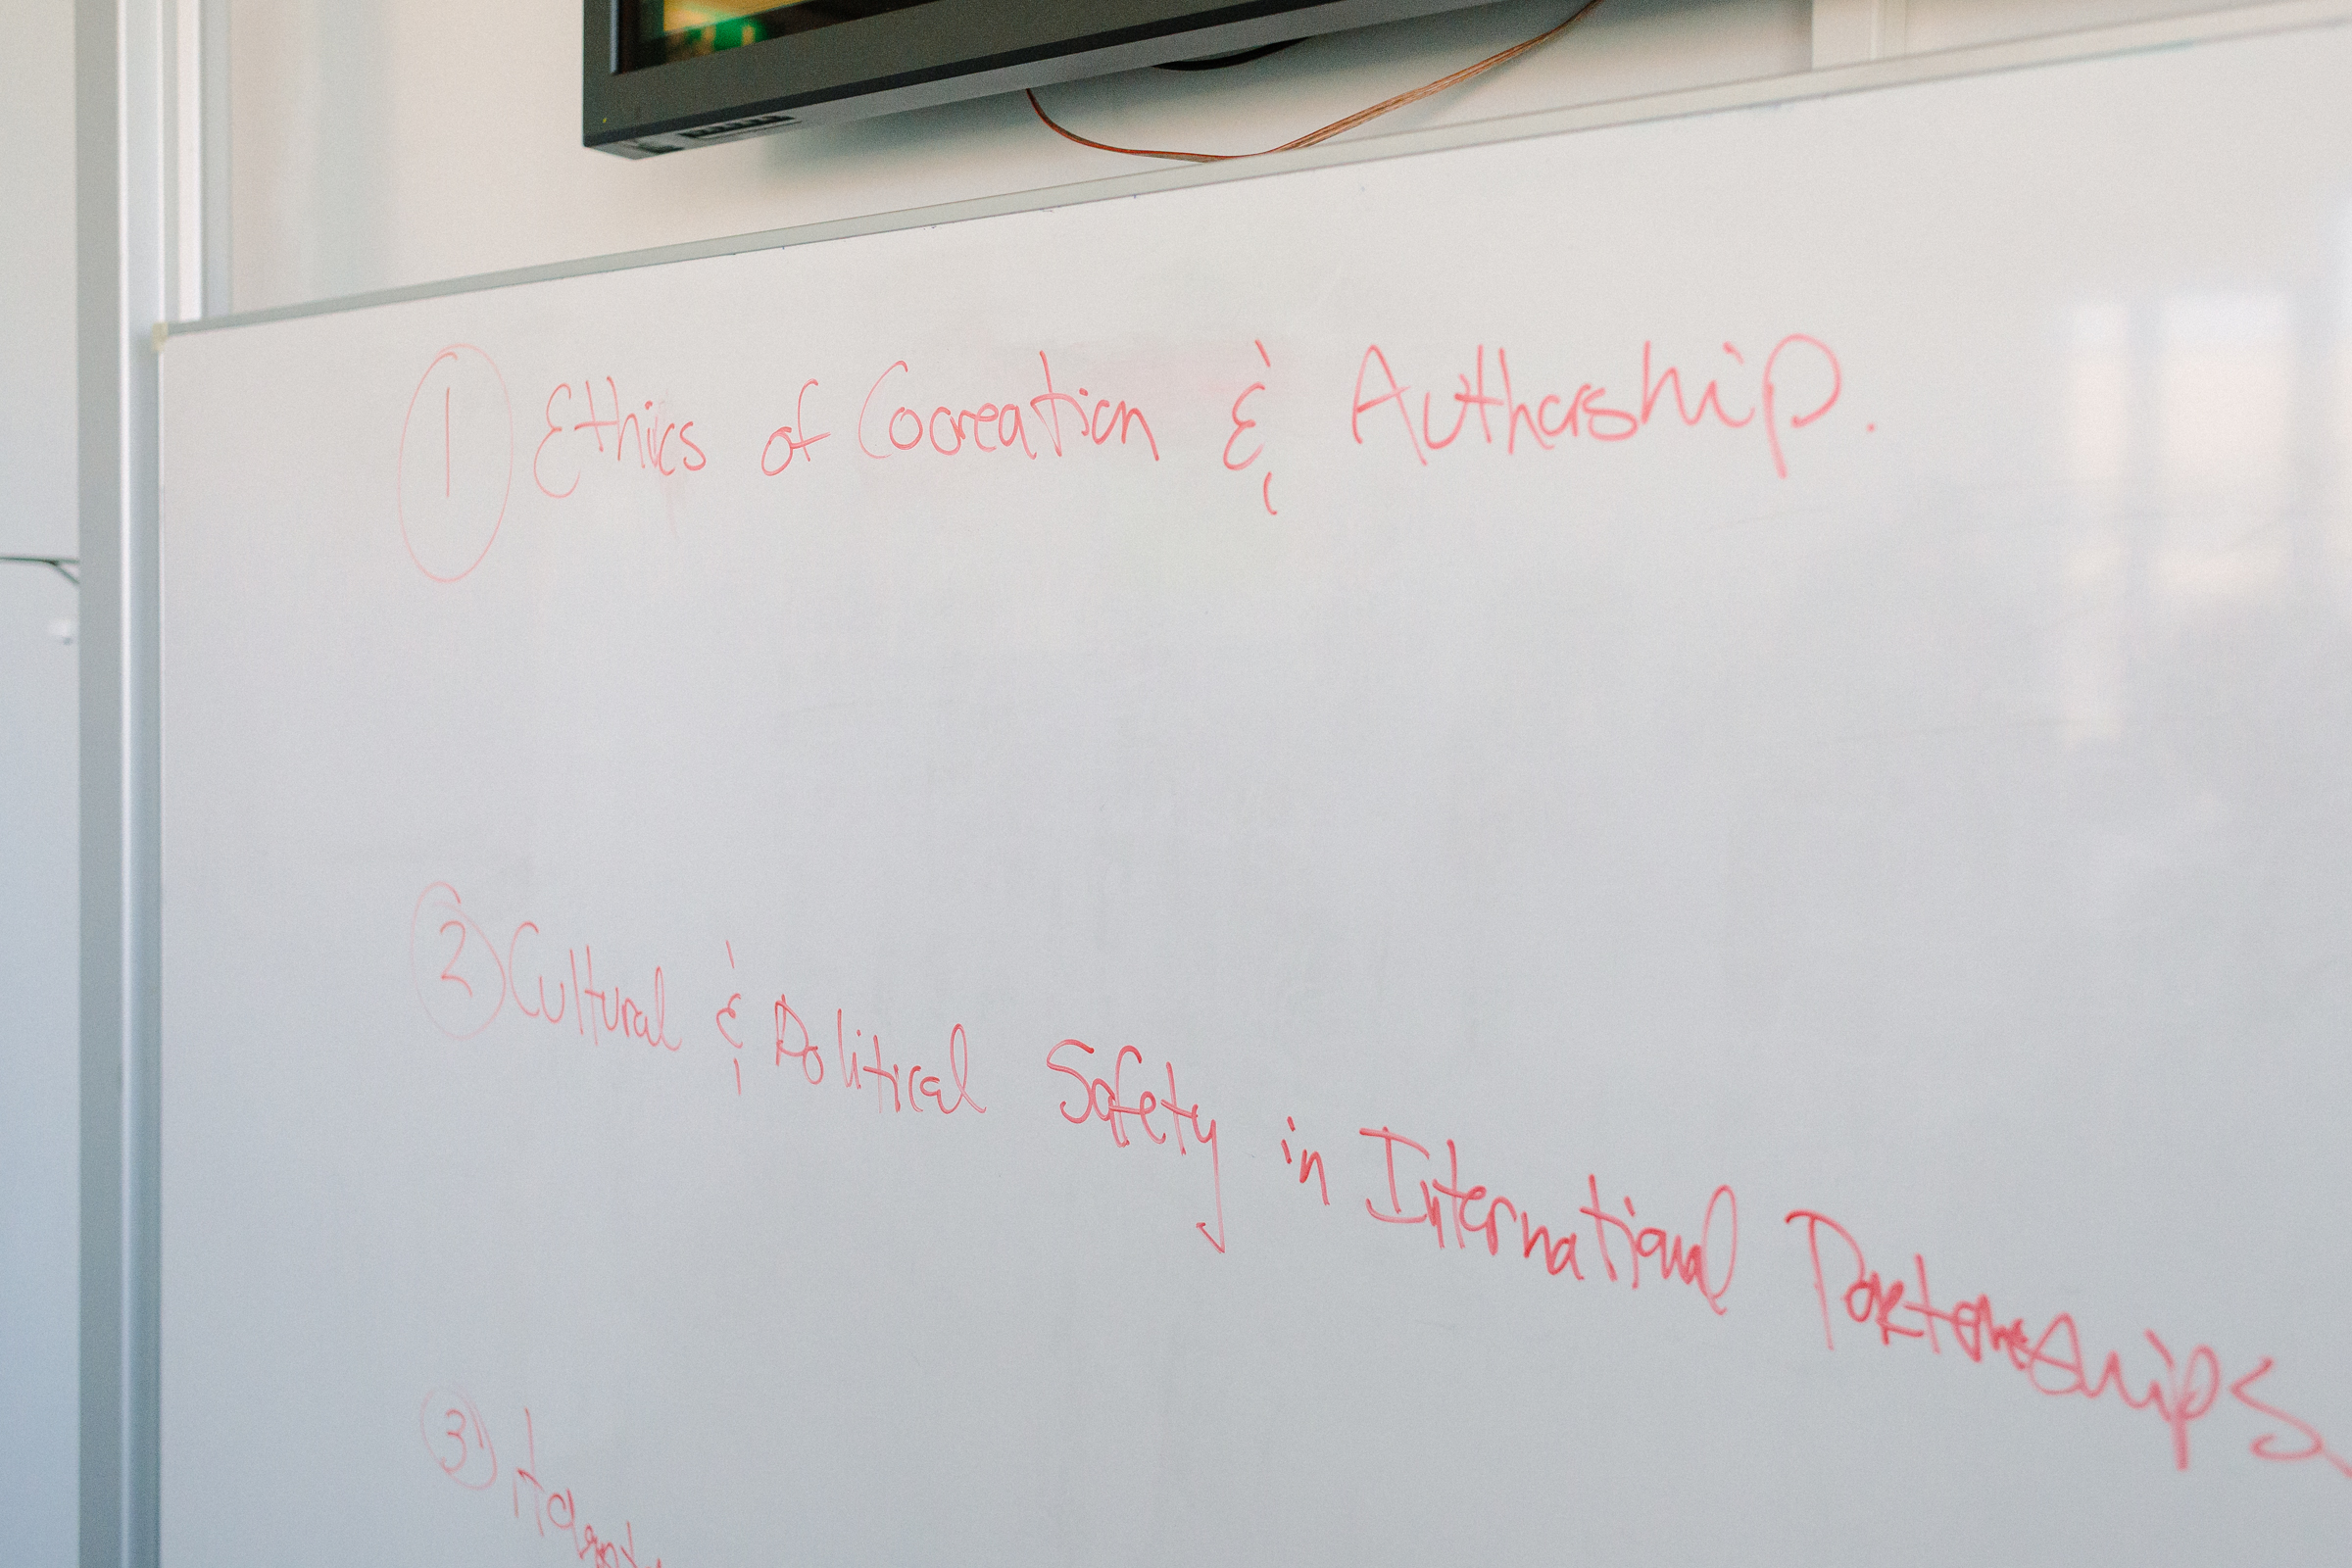 ① Ethics of Cocreation & Authorship.
② Cultural & Political Safety in International Partnerships
③